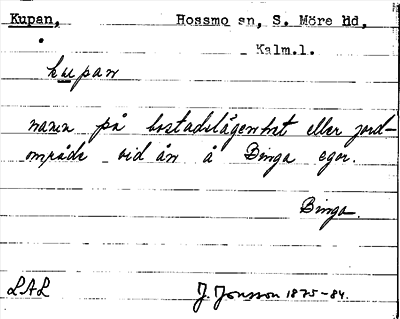 Kupan, Hossmo sn, S. Möre hd,
Kalm.l.
kupan
namn på bostadslägenhet eller jord-
område vid ån å Binga egor.
Binga.
LAL J. Jonsson 1875-84.